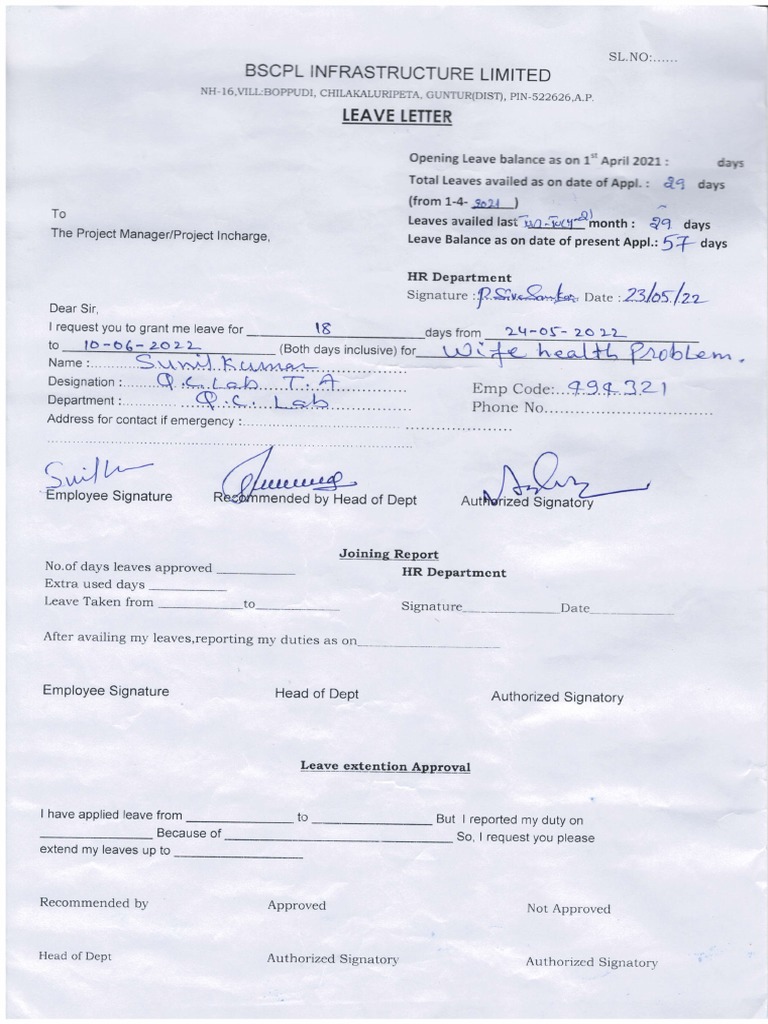 SL.NO:......
BSCPL INFRASTRUCTURE LIMITED
NH-16,VILL:BOPPUDI, CHILAKALURIPETA, GUNTUR(DIST), PIN-522626,A.P.
LEAVE LETTER
Opening Leave balance as on 1st April 2021 : days
Total Leaves availed as on date of Appl. : 29 days
(from 1-4- 2021 )
Leaves availed last month : 29 days
Leave Balance as on date of present Appl.: 57 days
To
The Project Manager/Project Incharge,
HR Department
Signature : P. Siva Sankar Date : 23/05/22
Dear Sir,
I request you to grant me leave for 18 days from 24-05-2022
to 10-06-2022 (Both days inclusive) for Wife health Problem.
Name : Sunil Kumar
Designation : Q.C. Lab T.A
Department : Q.C. Lab
Emp Code: 494321
Phone No.
Address for contact if emergency :
Employee Signature Recommended by Head of Dept Authorized Signatory
Joining Report
No.of days leaves approved
HR Department
Extra used days
Leave Taken from to
Signature Date
After availing my leaves,reporting my duties as on
Employee Signature Head of Dept Authorized Signatory
Leave extention Approval
I have applied leave from to But I reported my duty on
Because of So, I request you please
extend my leaves up to
Recommended by Approved Not Approved
Head of Dept Authorized Signatory Authorized Signatory